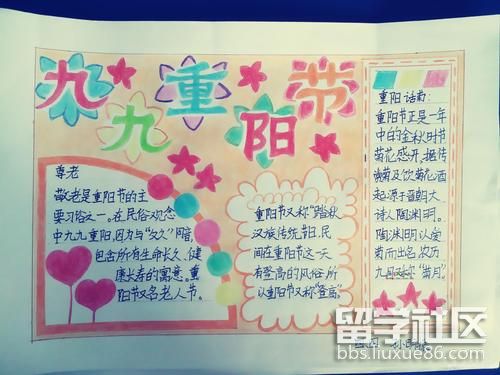 九九重阳节
尊老
敬老是重阳节的主
要习俗之一。在民俗观念
中九九重阳,因为与“久久”同音,
包含所有生命长久、健
康长寿的寓意。重
阳节又名老人节。
重阳节又称“踏秋”
汉族传统节日,民
间在重阳节这一天
有登高的风俗,所
以重阳节又称“登高”。
重阳话菊:
重阳节正是一年
中的金秋时节
菊花盛开,据传
诵菊及饮菊花酒
起源于晋朝大
诗人陶渊明。
陶渊明以爱
菊而出名,农历
九月又称“菊月”。
留学社区
bbs.liuxue86.com